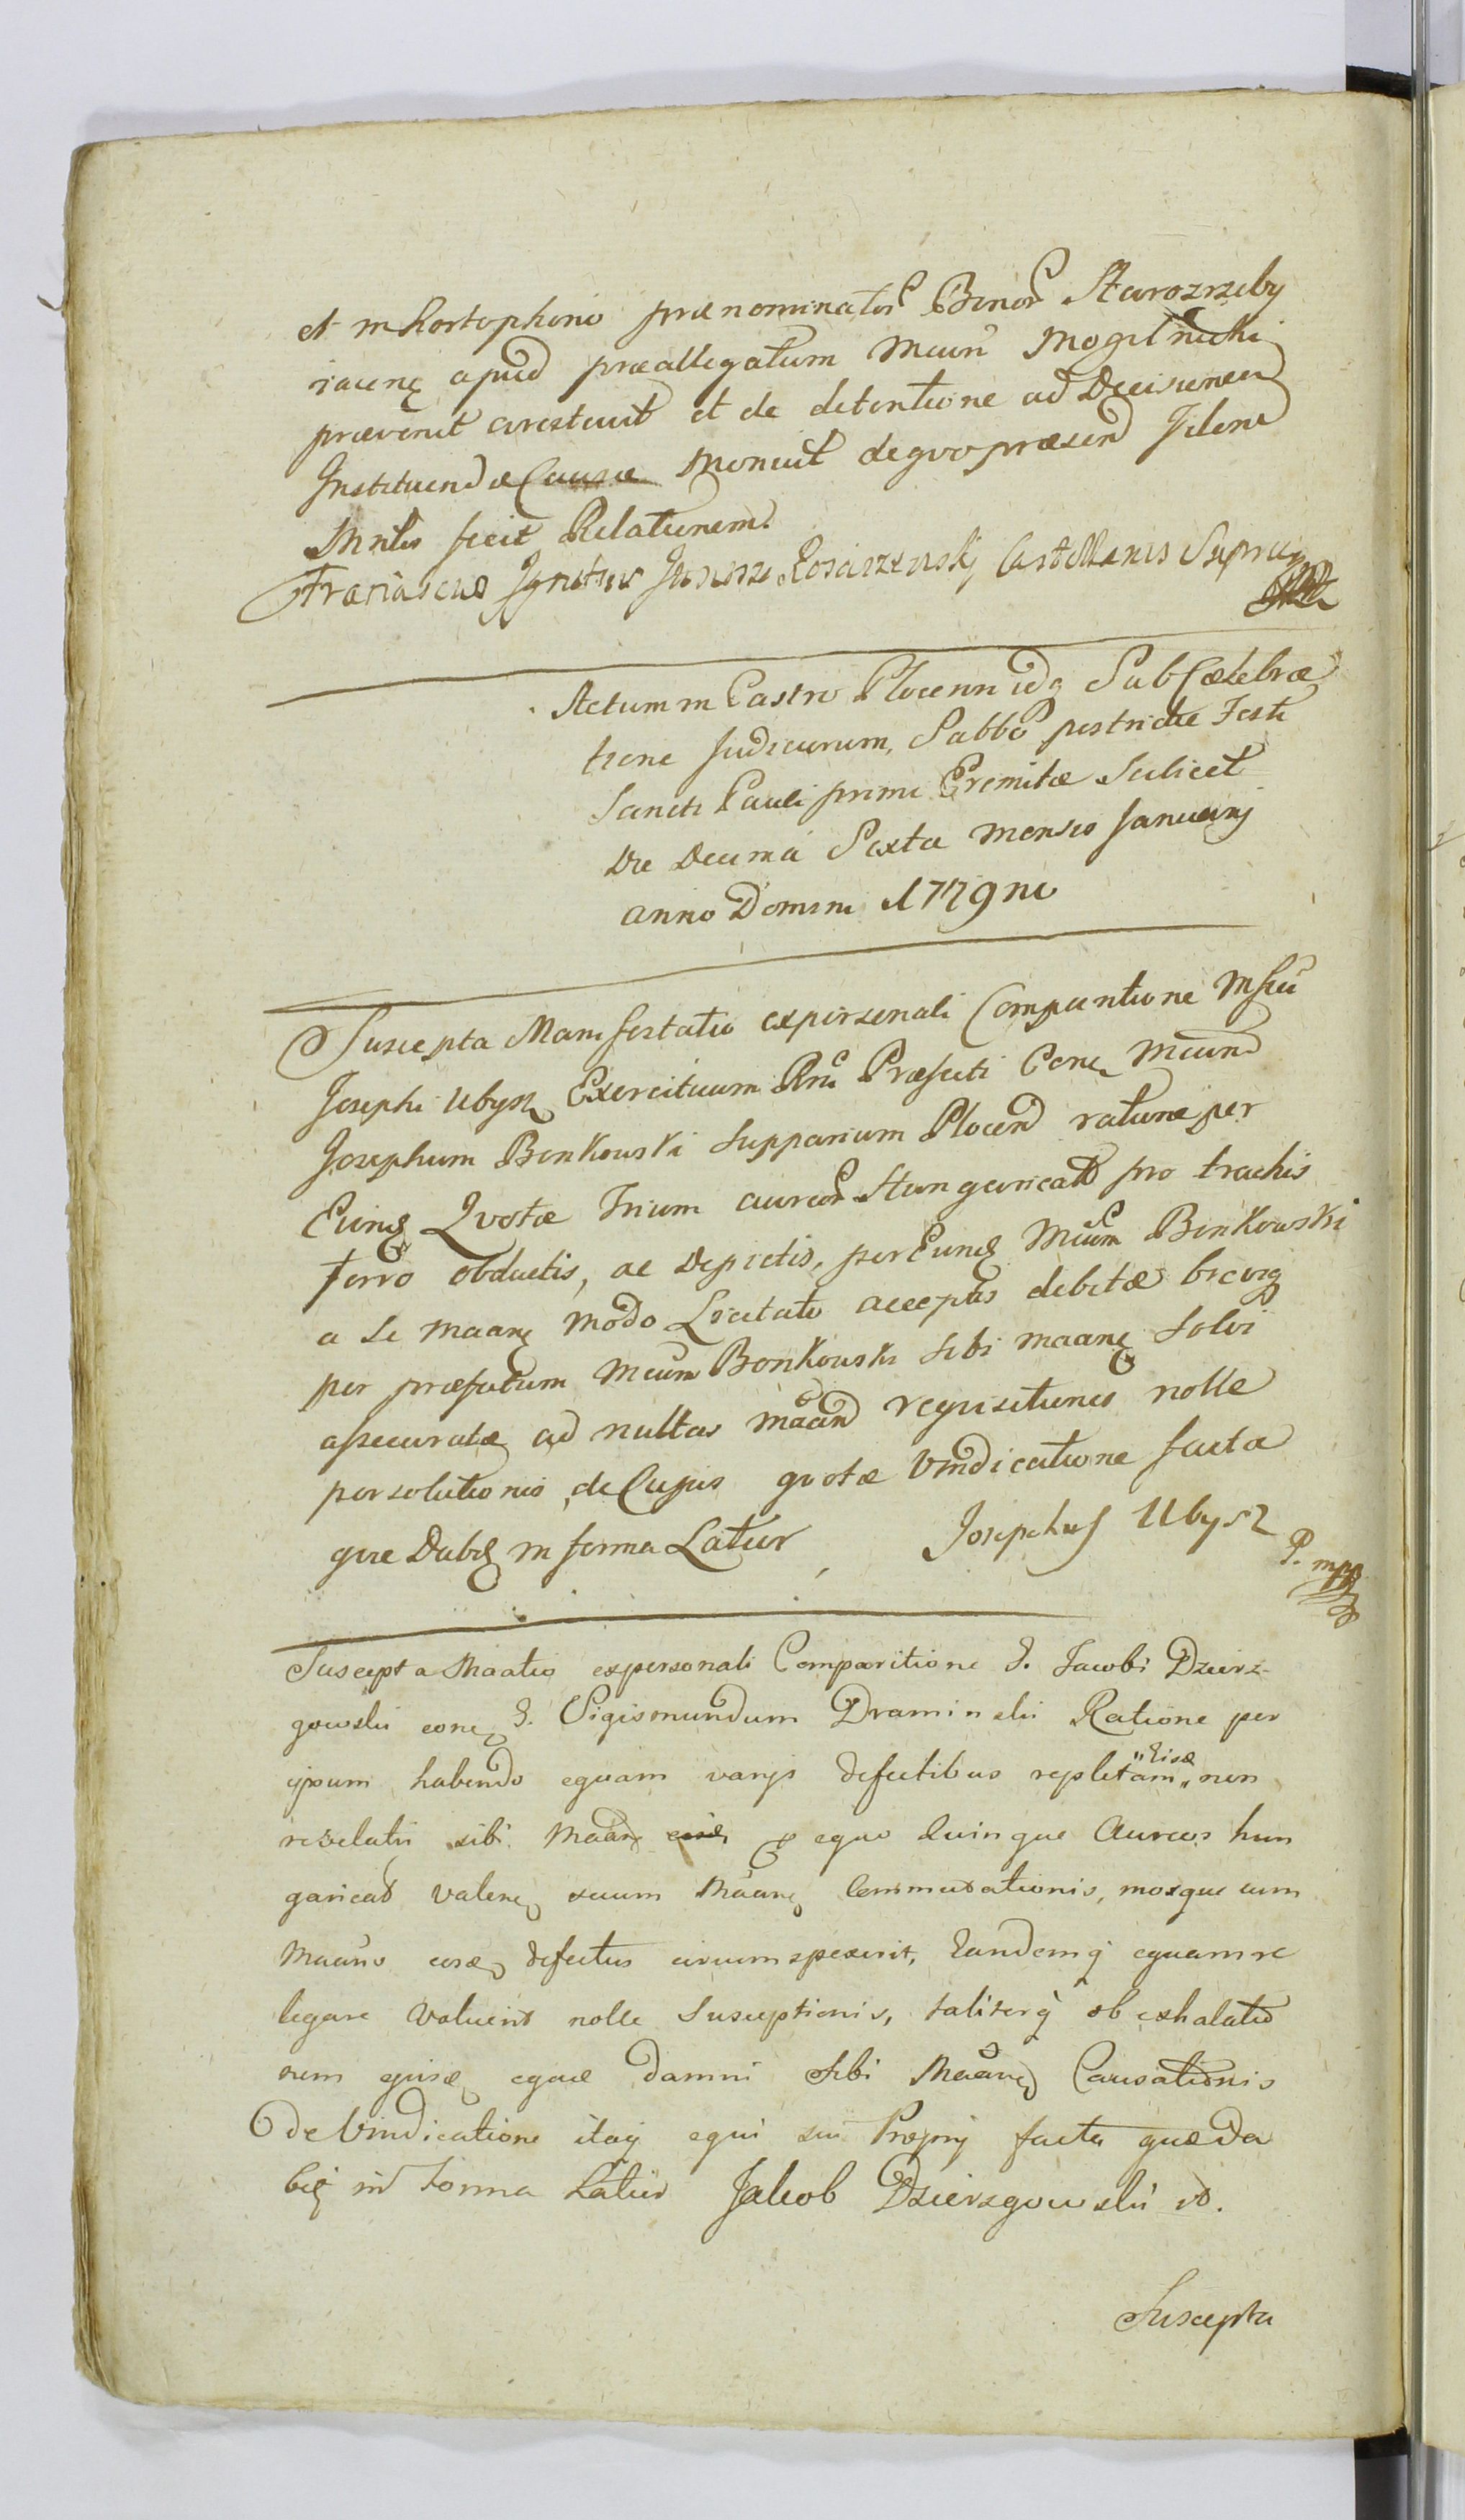 et in hortophino prænominator Bonor Starozreby
iacen apud præallegatum Mcum Mogilnicki
prævenit arestavit et de detentione ad Decisionem
Instituendæ Causæ Monuit de quo præsens Idem
Mntlis fecit Relationem
Franciscus Ignatius Kosciszewski Castellanis Supra
Actum in Castro Plocenn idq Sub Cælebra
tione Judiciorum, Sabbo postridie Festi
Sancti Pauli primi Eremitæ Scilicet
Die Decima Sexta Mensis Januarij
anno Domini 1779no
Suscepta Manifestatio expersonali Comparitione Mfici
Josephi Ubysz Exercituum Rni Præfecti Con Mcum
Josephum Bonkowski Supparium Plocen ratione per
Eund Quotæ Trium aureor Hungarical pro trachis
ferro obductis, ac Depictis, per Eund Mcum Bonkowski
a se maan modo Licitato acceptis debitæ bicvig
per præfatum Mcum Bonkowski sibi maan Solvi
assecuratæ ad nullas maan requisitiones nolle
persolutionis, de Cujus quotæ Vindicatione facta
quæ Dabit in forma Latior Josephus Ubysz
P. mpp
Suscepta Maatio expersonali Comparitione G. Jacobi Dzierz-
gowski con G. Sigismundum Draminski Ratione per
ipsum habendo equam varijs defectibus repletam " Eisd " non
revelatis sibi Maan pro equo Quinque Aureos hun
garical valen suum Maan Commutationis, moxque cum
Maans eosd defectus circumspexerit, Eandemq equam re
legare Voluerit nolle Susceptionis, taliterq ob exhalatio
nem ejusd equæ damni Sibi Maan Causationis
de Vindicatione itaq equi sui Proprij facta quæ Da
bit in Forma Latior Jakob Dzierzgowski
Suscepta